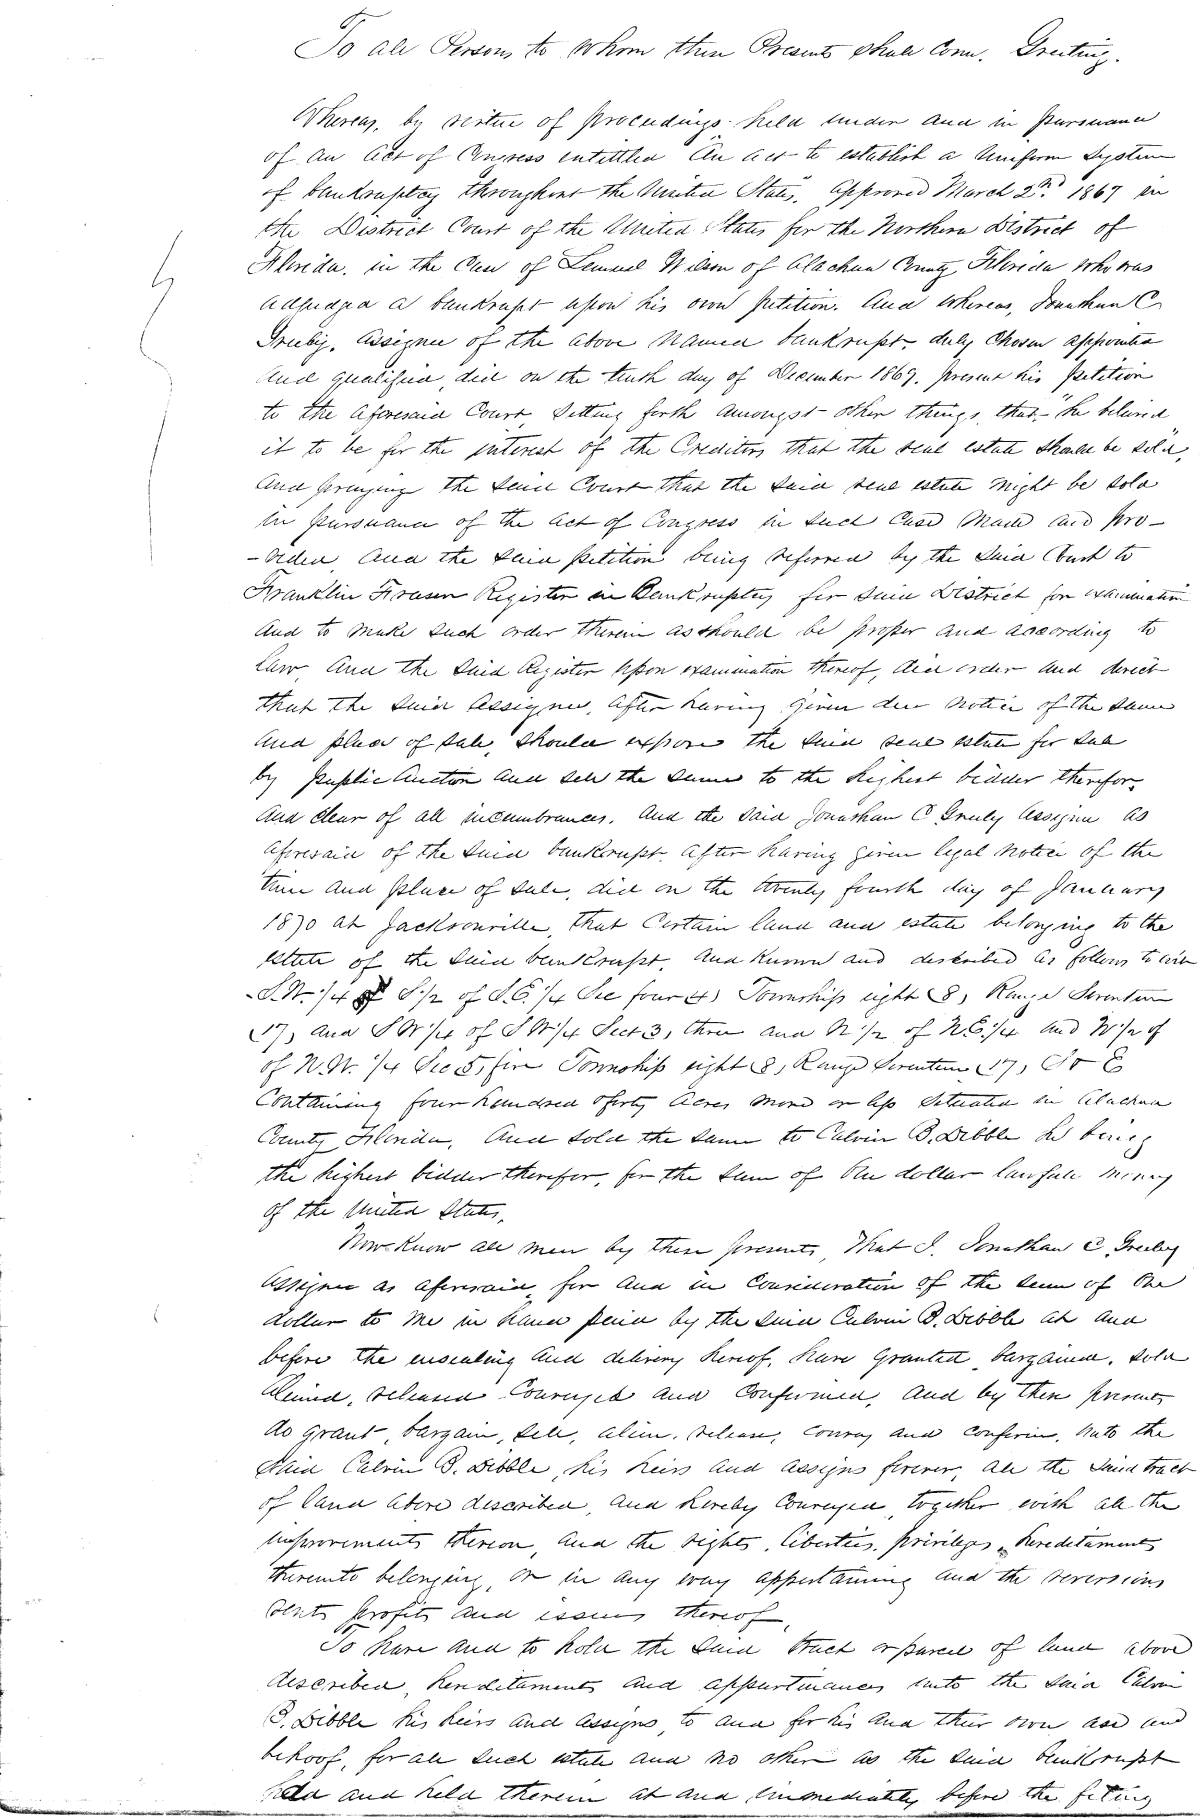 To all Persons to Whom these Presents shall Come, Greeting.
Whereas, by virtue of proceedings held under and in pursuance
of an Act of Congress entittled "An act to establish a Uniform System
of bankruptcy throughout the United States," approved March 2nd 1867 in
the District Court of the United States for the Northern District of
Florida, in the Case of Lemuel Wilson of Alachua County Florida who was
adjudged a bankrupt upon his own petition. And Whereas, Jonathan C
Greely, Assignee of the above named bankrupt, duly chosen appointed
And qualified, did on the tenth day of December 1869, present his petition
to the aforesaid Court, Setting forth amongst other things, that, "he believed
it to be for the interest of the Creditors that the real estate should be sold",
And praying the said Court that the said real estate might be sold
in pursuance of the act of Congress in such Case Made and pro-
-vided, And the said petition being referred by the said Court to
Franklin Fraser Register in Bankruptcy for said District for examination
And to make such order therein as should be proper and according to
law, And the said Register upon examination thereof, did order and direct
that the said Assignee, after having given due notice of the same
And place of sale, should expose the said real estate for sale
by public Auction and sell the same to the highest bidder therefor,
And clear of all incumbrances. And the said Jonathan C Greely Assignee as
aforesaid of the said bankrupt, after having given legal notice of the
time and place of sale, did on the twenty fourth day of January
1870 at Jacksonville, that Certain land and estate belonging to the
estate of the said bankrupt, and known and described as follows to wit
S.W. 1/4 S 1/2 of S.E. 1/4 Sec four (4) Township eight (8) Range Seventeen
(17) and S W 1/4 of S W 1/4 Sect 3, three and N. 1/2 of N.E. 1/4 and W 1/2 of
of N.W. 1/4 Sec 5, five Township eight (8) Range Seventeen (17) So E
Containing four hundred & forty Acres more or less Situated in Alachua
County Florida, And sold the same to Calvin B. Dibble he being
the highest bidder therefor, for the sum of One dollar lawful money
of the United States.
Now Know all men by these presents, That I, Jonathan C. Greeley
Assignee as aforesaid, for and in Consideration of the sum of One
dollar to me in hand paid by the said Calvin B. Dibble at and
before the ensealing and delivery hereof, have granted, bargained, sold
Aliened, released Conveyed and Confirmed, And by these presents
do grant, bargain, sell, alien, release, convey and confirm, unto the
Said Calvin B. Dibble, his heirs and assigns forever, all the said tract
of land above described, and hereby Conveyed, together with all the
improvements thereon, and the rights, liberties, privileges, hereditaments
thereunto belonging, or in any way appertaining and the reversions
rents profits and issues thereof,
To have and to hold the said tract or parcel of land above
described, hereditaments and appurtinances unto the said Calvin
B. Dibble his heirs and assigns, to and for his and their own use and
behoof, for all such estate and no other as the said bankrupt
had and held therein at and immediately before the filing